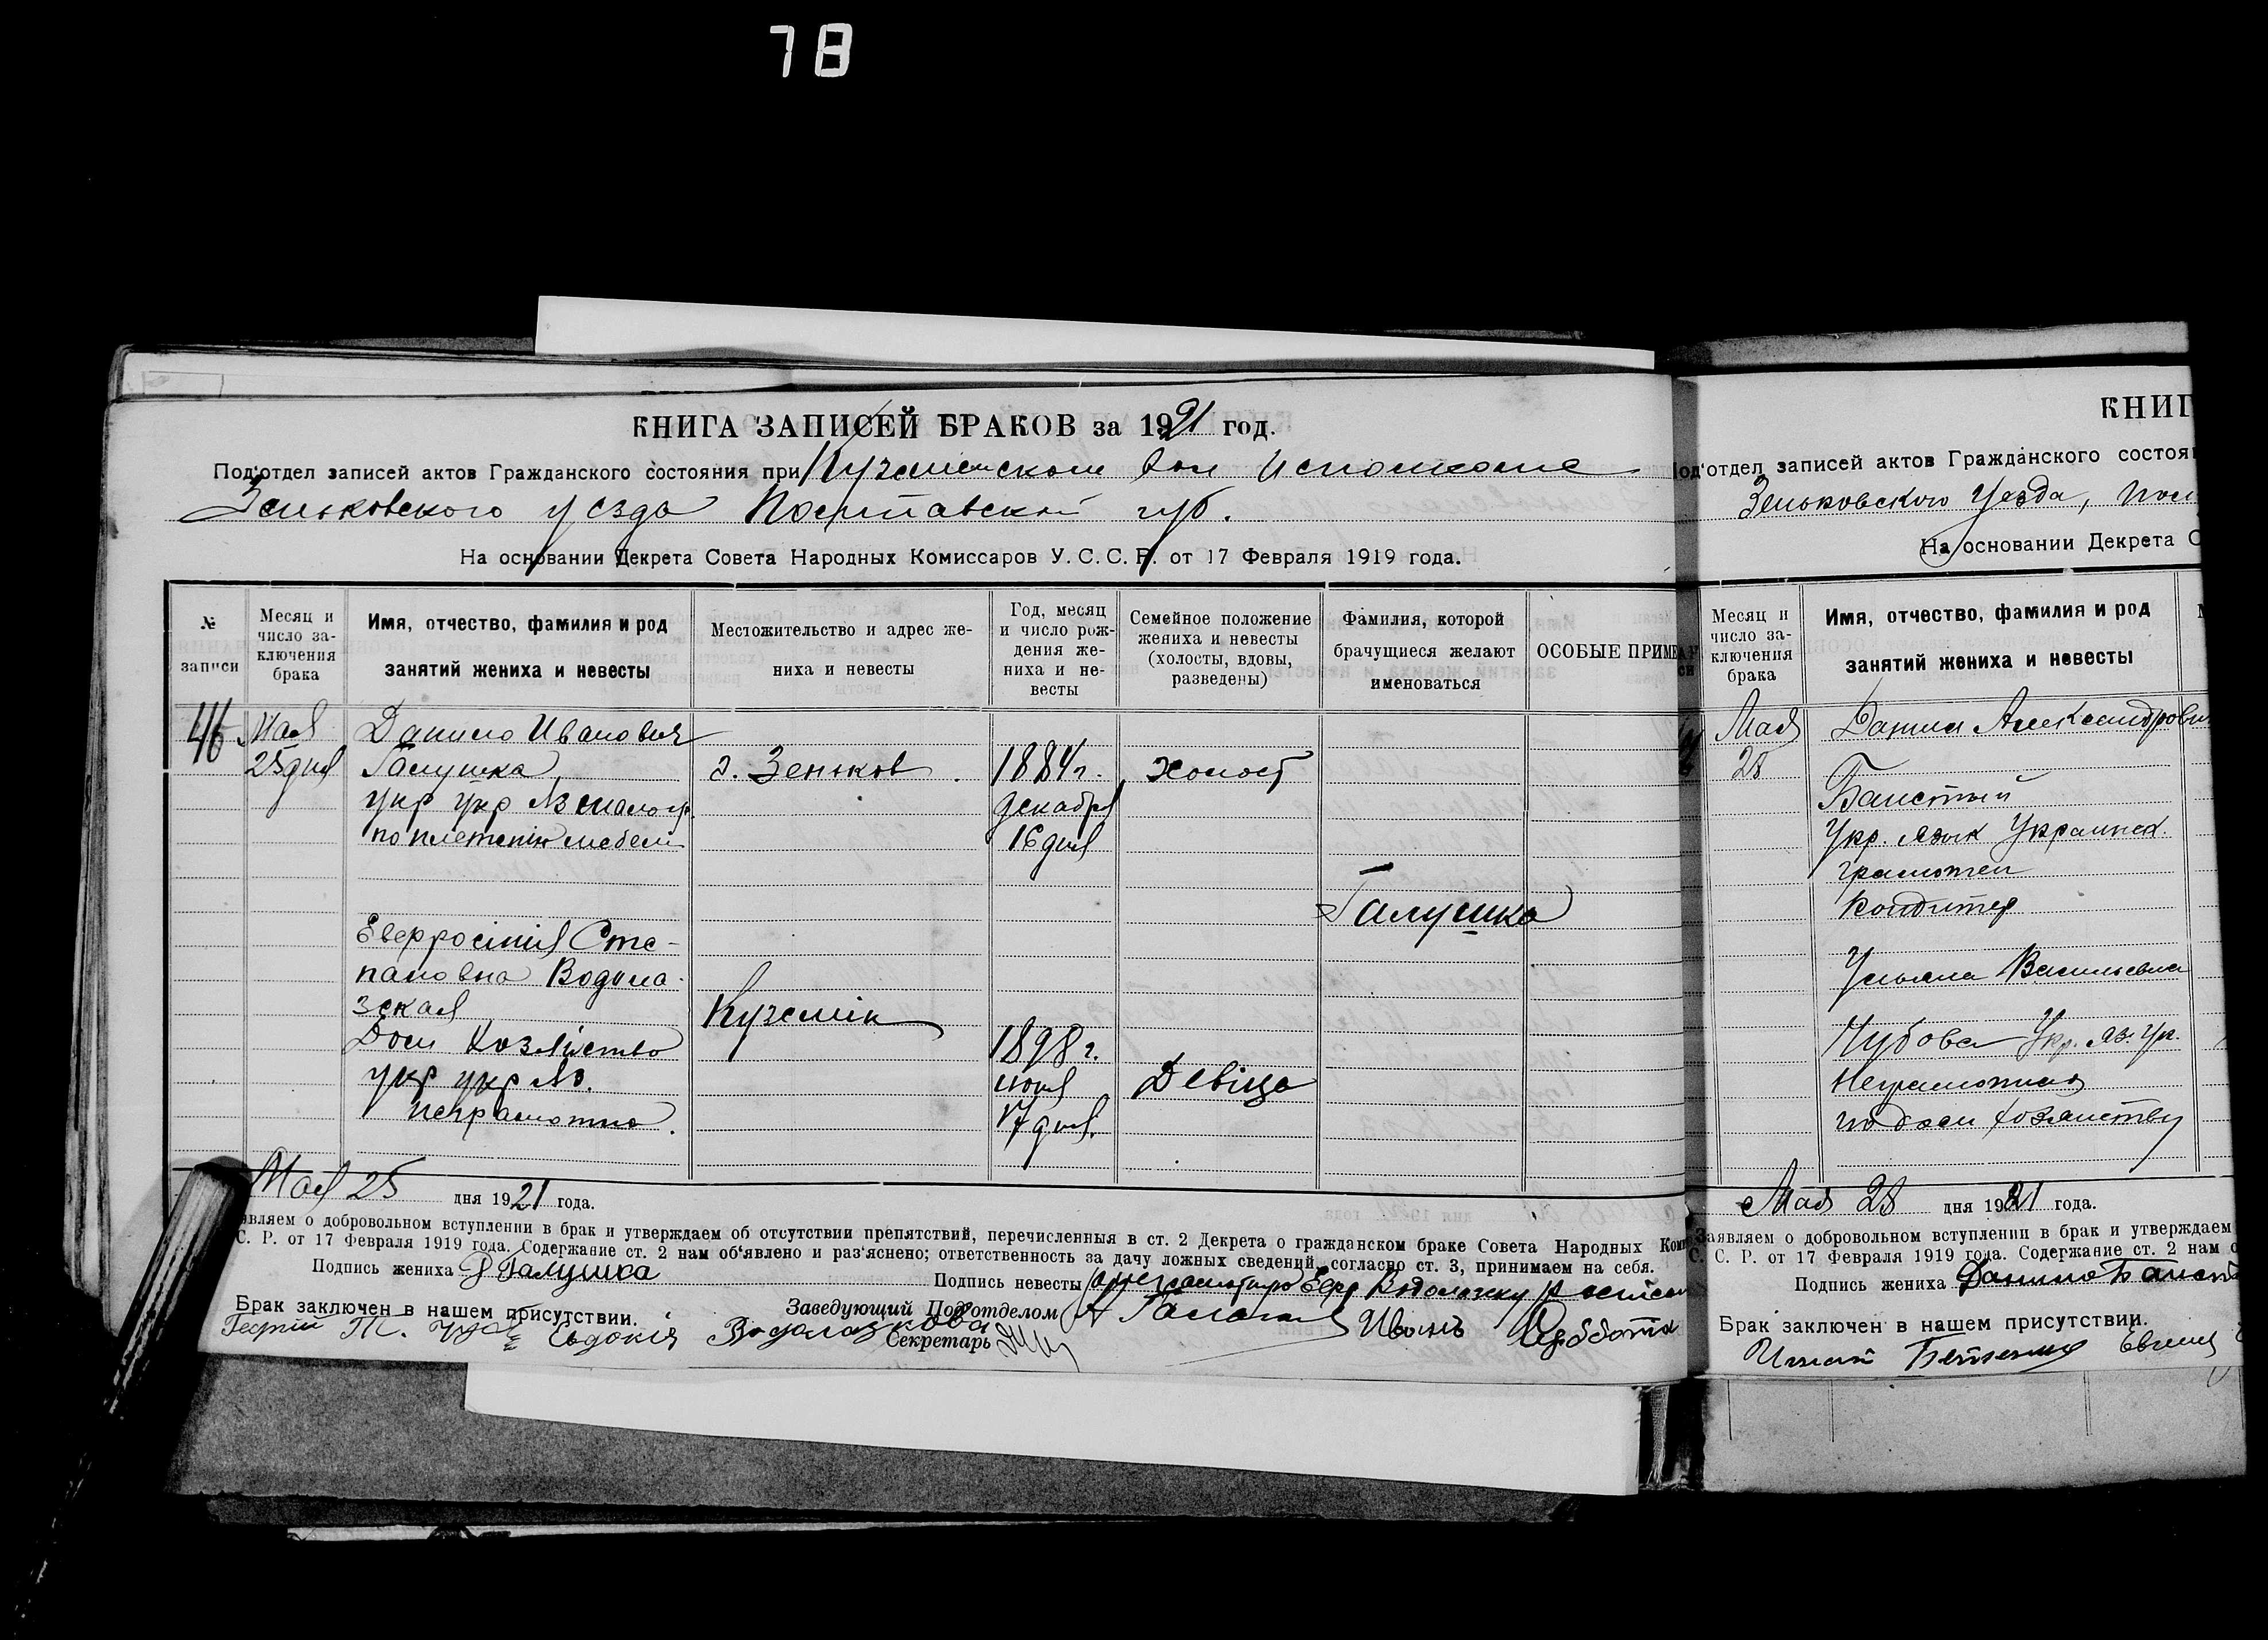 78
КНИГА ЗАПИСЕЙ БРАКОВ за 1921 год.
Под'отдел записей актов Гражданского состояния при Куземенском Вол Исполкоме
Зеньковского уезда Полтавской губ.
На основании Декрета Совета Народных Комиссаров У. С. С. Р. от 17 Февраля 1919 года.
№ записи
Месяц и число за-ключения брака
Имя, отчество, фамилия и род занятий жениха и невесты
Местожительство и адрес же-ниха и невесты
Год, месяц и число рож-дения же-ниха и не-весты
Семейное положение жениха и невесты (холосты, вдовы, разведены)
Фамилия, которой брачущиеся желают именоваться
ОСОБЫЕ ПРИМЕ
46 Мая Данило Иванович
25 дня Галушка, г. Зеньков. 1884 г. холост
укр укр яз декабря
по плетенію мебели 16 дня
Галушка
Евфросинія Сте-
пановна Водола-
зская Куземін
Дом Хозяйство 1898 г.
укр укр яз. июня Девіца
неграмотна. 17 дня.
Мая 25 дня 1921 года.
являем о добровольном вступлении в брак и утверждаем об отсутствии препятствий, перечисленныя в ст. 2 Декрета о гражданском браке Совета Народных Ком
С. Р. от 17 Февраля 1919 года. Содержание ст. 2 нам об'явлено и раз'яснено; ответственность за дачу ложных сведений, согласно ст. 3, принимаем на себя.
Подпись жениха Д Галушка Подпись невесты
Брак заключен в нашем присутствии. Заведующий Под'отделом
Георгій Евдокія Водолазкова Иванъ Суббота
Секретарь
КНИГ
Под'отдел записей актов Гражданского состоян
Зеньковского Уезда, Пол
На основании Декрета С
Месяц и число за-ключения брака
Имя, отчество, фамилия и род занятий жениха и невесты
Мая Данил Александрови
28
Укр. язык Украинск.
грамотен
Кондитер
Ульяна Васильевна
Чубова Укр. яз. Ук.
Неграмотная
по дом хозяйству
Мая 28 дня 1921 года.
Заявляем о добровольном вступлении в брак и утверждаем
С. С. Р. от 17 Февраля 1919 года. Содержание ст. 2 нам о
Подпись жениха Данило
Брак заключен в нашем присутствии.